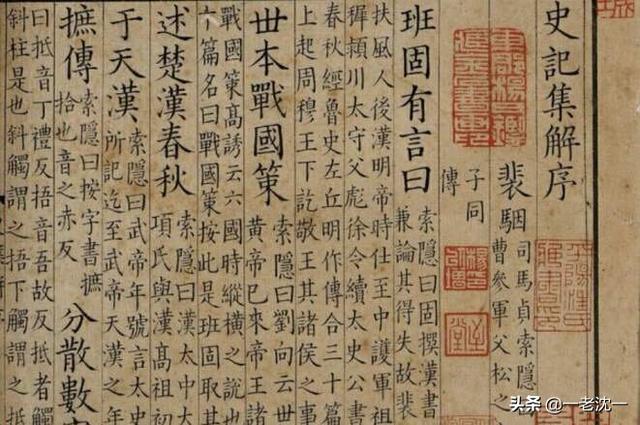 史記集解序
裴駰
司馬貞索隱
曹參軍父松之
子同
傳
班固有言曰
索隱曰固撰漢書
兼論其得失故裴
扶風人後漢明帝時仕至中護軍祖
穉潁川太守父彪徐令續太史公書
春秋經魯史左丘明作傳合三十篇
上起周穆王下訖敬王其諸侯之事
世本戰國策
索隱曰劉向云世
黃帝已來帝王諸
戰國策高誘云六國時縱橫之說也
六篇名曰戰國策按此是班固取其
述楚漢春秋
索隱曰漢太中大
項氏與漢高祖初
于天漢
索隱曰武帝年號言太史
所記迄至武帝天漢之年
摭傳
索隱曰按字書摭
拾也音之赤反
分散數
曰抵音丁禮反捂音吾故反抵者觸
斜柱是也斜觸謂之捂下觸謂之抵
头条 @一老沈一